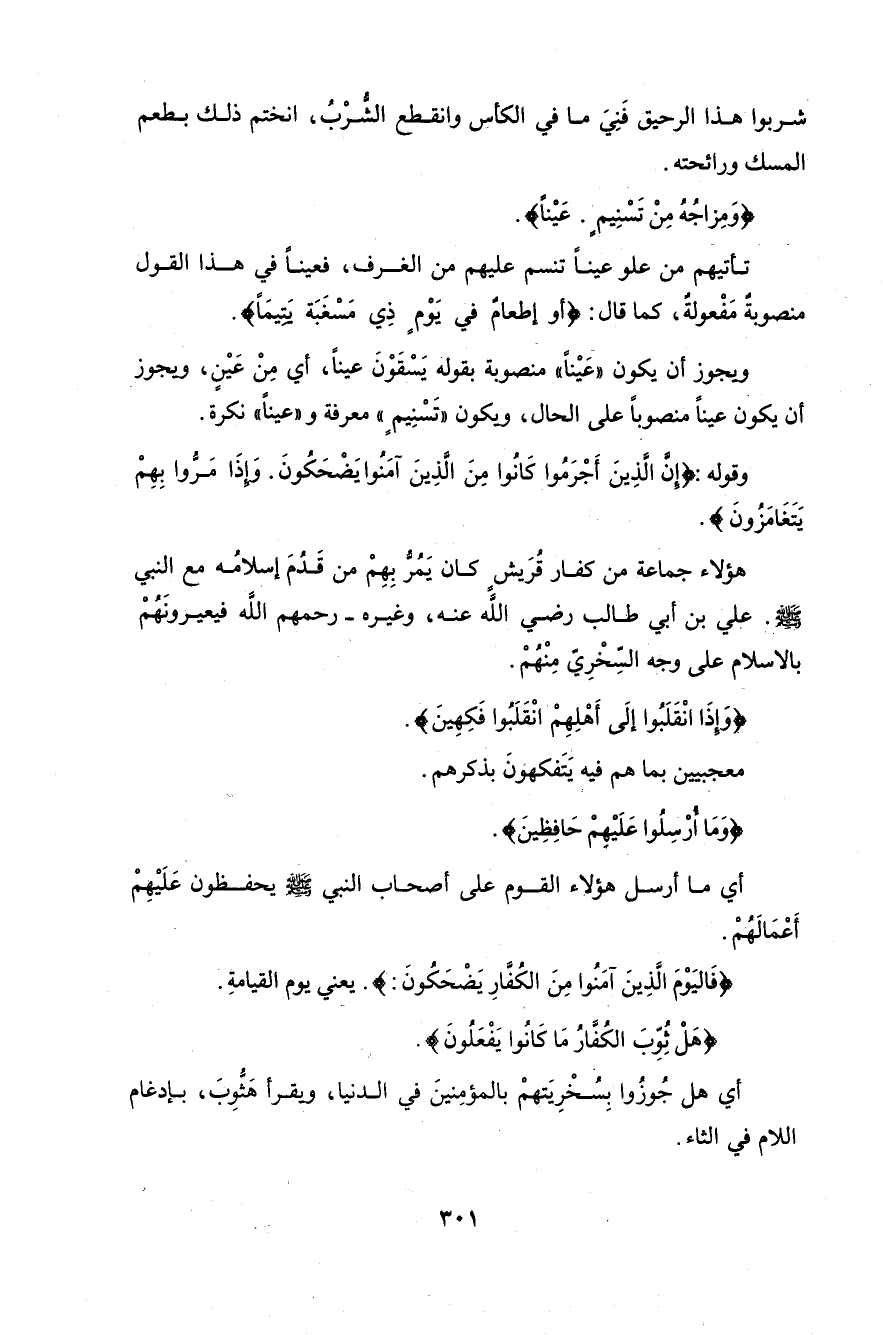 شربوا هذا الرحيق فَنِيَ ما في الكأس وانقطع الشُّرْبُ، انختم ذلك بطعم
المسك ورائحته.
﴿وَمِزاجُهُ مِنْ تَسْنِيمٍ. عَيْناً﴾.
تأتيهم من علو عيناً تنسم عليهم من الغرف، فعيناً في هذا القول
منصوبةٌ مَفْعولةٌ، كما قال: ﴿أو إطعامٌ في يَوْمٍ ذِي مَسْغَبَة يَتِيمَاً﴾.
ويجوز أن يكون «عَيْناً» منصوبة بقوله يَسْقَوْنَ عيناً، أي مِنْ عَيْنٍ، ويجوز
أن يكون عيناً منصوباً على الحال، ويكون «تَسْنِيمٍ» معرفة و «عيناً» نكرة.
وقوله: ﴿إِنَّ الَّذِينَ أَجْرَمُوا كَانُوا مِنَ الَّذِينَ آمَنُوا يَضْحَكُونَ. وَإِذَا مَرُّوا بِهِمْ
يَتَغَامَزُونَ﴾.
هؤلاء جماعة من كفار قُرَيشٍ كان يَمُرُّ بِهِمْ من قَدُمَ إسلامُه مع النبي
ﷺ. علي بن أبي طالب رضي اللَّه عنه، وغيره ـ رحمهم اللَّه فيعيرونَهُمْ
بالاسلام على وجه السِّخْرِيّ مِنْهُمْ.
﴿وَإِذَا انْقَلَبُوا إِلَى أَهْلِهِمْ انْقَلَبُوا فَكِهِينَ﴾.
معجبيين بما هم فيه يَتَفكهونَ بذكرهم.
﴿وَمَا أُرْسِلُوا عَلَيْهِمْ حَافِظِينَ﴾.
أي ما أرسل هؤلاء القوم على أصحاب النبي ﷺ يحفظون عَلَيْهِمْ
أَعْمَالَهُمْ.
﴿فَاليَوْمَ الَّذِينَ آمَنُوا مِنَ الكُفَّارِ يَضْحَكُونَ:﴾. يعني يوم القيامةِ.
﴿هَلْ ثُوِّبَ الكُفَّارُ مَا كَانُوا يَفْعَلُونَ﴾.
أي هل جُوزُوا بِسُخْرِيَتهمْ بالمؤمِنينَ في الدنيا، ويقرأ هَثُّوِبَ، بإدغام
اللام في الثاء.
٣٠١